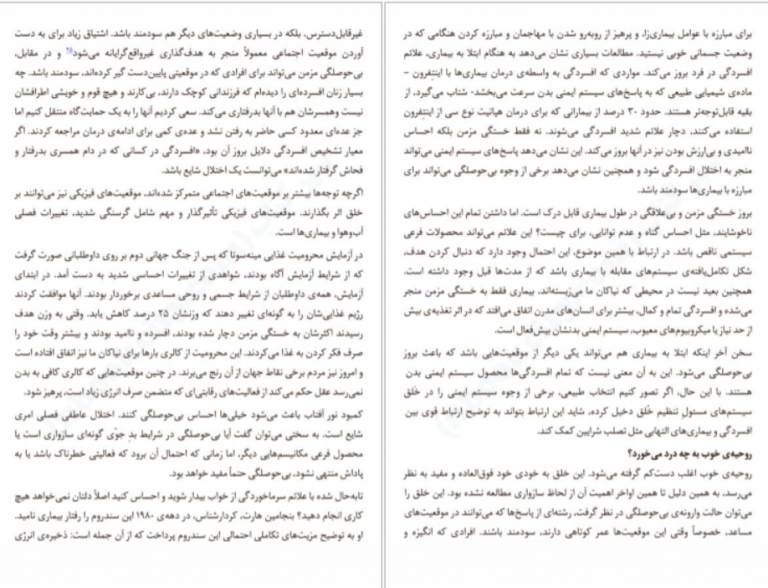 غیرقابل‌دسترس، بلکه در بسیاری وضعیت‌های دیگر هم سودمند باشد. اشتیاق زیاد برای به دست
آوردن موقعیت اجتماعی معمولاً منجر به هدف‌گذاری غیرواقع‌گرایانه می‌شود و در مقابل،
بی‌حوصلگی مزمن می‌تواند برای افرادی که در موقعیتی پایین‌دست گیر کرده‌اند، سودمند باشد. چه
بسیار زنان افسرده‌ای را دیده‌ام که فرزندانی کوچک دارند، بی‌کارند و هیچ قوم و خویشی اطرافشان
نیست وهمسرشان هم با آنها بدرفتاری می‌کند. سعی کردیم آنها را به یک حمایت‌گاه منتقل کنیم اما
جز عده‌ای معدود کسی حاضر به رفتن نشد و عده‌ی کمی برای ادامه‌ی درمان مراجعه کردند. اگر
معیار تشخیص افسردگی دلایل بروز آن بود، «افسردگی در کسانی که در دام همسری بدرفتار و
فحاش گرفتار شده‌اند» می‌توانست یک اختلال شایع باشد.
اگرچه توجه‌ها بیشتر بر موقعیت‌های اجتماعی متمرکز شده‌اند، موقعیت‌های فیزیکی نیز می‌توانند بر
خلق اثر بگذارند. موقعیت‌های فیزیکی تأثیرگذار و مهم شامل گرسنگی شدید، تغییرات فصلی
آب‌وهوا و بیماری‌ها است.
در آزمایش محرومیت غذایی مینه‌سوتا که پس از جنگ جهانی دوم بر روی داوطلبانی صورت گرفت
که از شرایط آزمایش آگاه بودند، شواهدی از تغییرات احساسی شدید به دست آمد. در ابتدای
آزمایش، همه‌ی داوطلبان از شرایط جسمی و روحی مساعدی برخوردار بودند. آنها موافقت کردند
رژیم غذایی‌شان را به گونه‌ای تغییر دهند که وزنشان ۲۵ درصد کاهش یابد. وقتی به وزن هدف
رسیدند اکثرشان به خستگی مزمن دچار شده بودند، افسرده و ناامید بودند و بیشتر وقت خود را
صرف فکر کردن به غذا می‌کردند. این محرومیت از کالری بارها برای نیاکان ما نیز اتفاق افتاده است
و امروز نیز مردم برخی نقاط جهان از آن رنج می‌برند. در چنین موقعیت‌هایی که کالری کافی به بدن
نمی‌رسد عقل حکم می‌کند از فعالیت‌های رقابتی‌ای که متضمن صرف انرژی زیاد است، پرهیز شود.
کمبود نور آفتاب باعث می‌شود خیلی‌ها احساس بی‌حوصلگی کنند. اختلال عاطفی فصلی امری
شایع است. به سختی می‌توان گفت آیا بی‌حوصلگی در شرایط بد جوّی گونه‌ای سازواری است یا
محصول فرعی مکانیسم‌هایی دیگر، اما زمانی که احتمال آن برود که فعالیتی خطرناک باشد یا به
پاداش منتهی نشود، بی‌حوصلگی حتماً مفید خواهد بود.
تابه‌حال شده با علائم سرماخوردگی از خواب بیدار شوید و احساس کنید اصلاً دلتان نمی‌خواهد هیچ
کاری انجام دهید؟ بنجامین هارت، کردارشناس، در دهه‌ی ۱۹۸۰ این سندروم را رفتار بیماری نامید.
او به توضیح مزیت‌های تکاملی احتمالی این سندروم پرداخت که از آن جمله است: ذخیره‌ی انرژی
برای مبارزه با عوامل بیماری‌زا، و پرهیز از روبه‌رو شدن با مهاجمان و مبارزه کردن هنگامی که در
وضعیت جسمانی خوبی نیستید. مطالعات بسیاری نشان می‌دهد به هنگام ابتلا به بیماری، علائم
افسردگی در فرد بروز می‌کند. مواردی که افسردگی به واسطه‌ی درمان بیماری‌ها با اینترفرون –
ماده‌ی شیمیایی طبیعی که به پاسخ‌های سیستم ایمنی بدن سرعت می‌بخشد- شتاب می‌گیرد، از
بقیه قابل‌توجه‌تر هستند. حدود ۳۰ درصد از بیمارانی که برای درمان هپاتیت نوع سی از اینترفرون
استفاده می‌کنند، دچار علائم شدید افسردگی می‌شوند. نه فقط خستگی مزمن بلکه احساس
ناامیدی و بی‌ارزش بودن نیز در آنها بروز می‌کند. این نشان می‌دهد پاسخ‌های سیستم ایمنی می‌تواند
منجر به اختلال افسردگی شود و همچنین نشان می‌دهد برخی از وجوه بی‌حوصلگی می‌تواند برای
مبارزه با بیماری‌ها سودمند باشد.
بروز خستگی مزمن و بی‌علاقگی در طول بیماری قابل درک است. اما داشتن تمام این احساس‌های
ناخوشایند، مثل احساس گناه و عدم توانایی، برای چیست؟ این علائم می‌تواند محصولات فرعی
سیستمی ناقص باشد. در ارتباط با همین موضوع، این احتمال وجود دارد که دنبال کردن هدف،
شکل تکامل‌یافته‌ی سیستم‌های مقابله با بیماری باشد که از مدت‌ها قبل وجود داشته است.
همچنین بعید نیست در محیطی که نیاکان ما می‌زیسته‌اند، بیماری فقط به خستگی مزمن منجر
می‌شده و افسردگی تمام و کمال، بیشتر برای انسان‌های مدرن اتفاق می‌افتد که در اثر تغذیه‌ی بیش
از حد نیاز یا میکروبیوم‌های معیوب، سیستم ایمنی بدنشان بیش‌فعال است.
سخن آخر اینکه ابتلا به بیماری هم می‌تواند یکی دیگر از موقعیت‌هایی باشد که باعث بروز
بی‌حوصلگی می‌شود. این به آن معنی نیست که تمام افسردگی‌ها محصول سیستم ایمنی بدن
هستند. با این حال، اگر تصور کنیم انتخاب طبیعی، برخی از وجوه سیستم ایمنی را در خلق
سیستم‌های مسئولِ تنظیم خُلق دخیل کرده، شاید این ارتباط بتواند به توضیح ارتباط قوی بین
افسردگی و بیماری‌های التهابی مثل تصلب شرایین کمک کند.
روحیه‌ی خوب به چه درد می‌خورد؟
روحیه‌ی خوب اغلب دست‌کم گرفته می‌شود. این خلق به خودی خود فوق‌العاده و مفید به نظر
می‌رسد، به همین دلیل تا همین اواخر اهمیت آن از لحاظ سازواری مطالعه نشده بود. این خلق را
می‌توان حالت وارونه‌ی بی‌حوصلگی در نظر گرفت، رشته‌ای از پاسخ‌ها که می‌توانند در موقعیت‌های
مساعد، خصوصاً وقتی این موقعیت‌ها عمر کوتاهی دارند، سودمند باشند. افرادی که انگیزه و